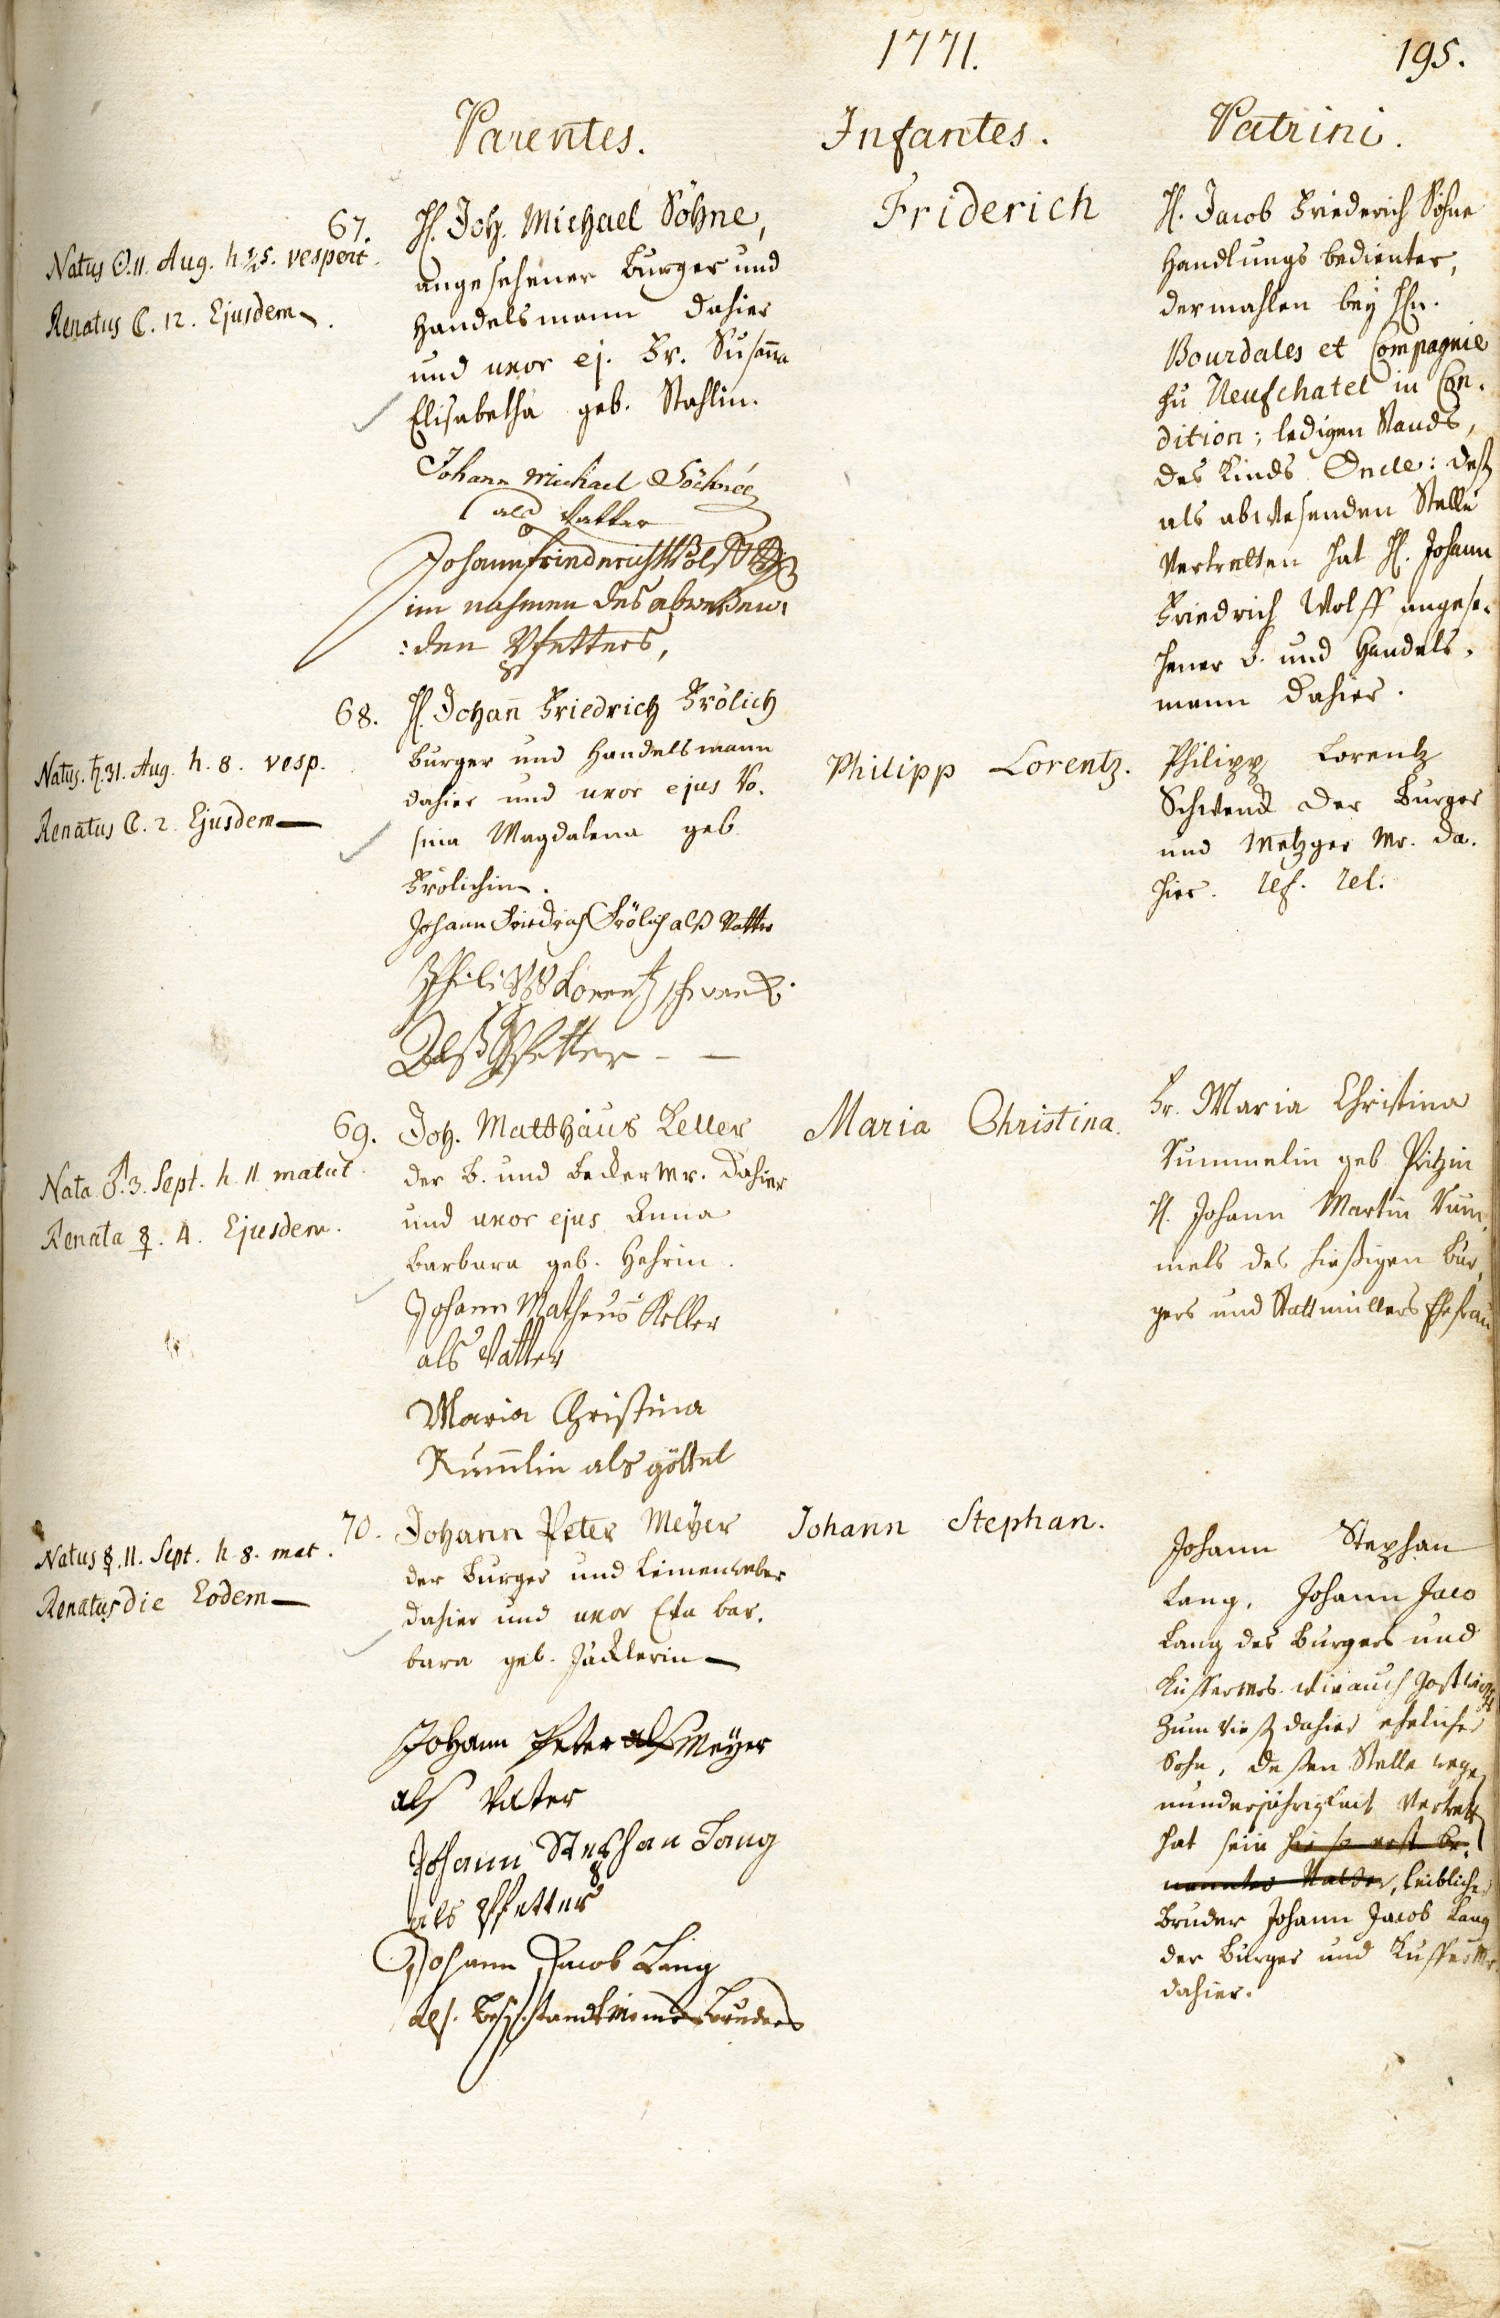 1771.
195.
Parentes.
Infantes.
Patrini.
67.
Natus ☉. 11. Aug. h. ½5. vespert.
Renatus ☾. 12. Ejusdem
H. Joh. Michael Söhne,
angesehener Burger und
Handelsmann dahier
und uxor ej. Fr. Susanna
Elisabetha geb. Stahlin.
Johann Michael Söhneé
als Vatter
Johann Friederich Wolff
im nahmen des abweßen=
:den Pfetters,
Friderich
H. Jacob Friederich Söhne
Handlungs bedienter,
dermahlen bey Hn.
Bourdales et Compagnie
zu Neufchatel in Con=
dition; ledigen Stands,
des Kinds Oncle: deß
als abwesenden Stelle
Vertretten hat H. Johann
Friedrich Wolff angese=
hener b. und Handels=
mann dahier.
68.
Natus. ♄. 31. Aug. h. 8. vesp.
Renatus ☾. 2. Ejusdem
H. Johañ Friedrich Frölich
burger und Handelsmann
dahier und uxor ejus Ro=
sina Magdalena geb.
Frölichin.
Johann Friedrich Frölich alß Vatter
Philipp Lorentz schwend
Alß Pfetter
Philipp Lorentz.
Philipp Lorentz
Schwend der Burger
und Metzger Mr. da=
hier. ref. rel.
69.
Nata ♂. 3. Sept. h. 11. matut.
Renata ☿. 4. Ejusdem.
Joh. Matthäus Keller
der b. und becker Mr. dahier
und uxor ejus Anna
Barbara geb. Hehrin.
Johann Matheus Keller
als Vatter
Maria Christina
Rum̄lin als göttel
Maria Christina.
Fr. Maria Christina
Rummelin geb. Pitzin
H. Johann Martin Rum=
mels des hießigen bur=
gers und Stattmüllers Ehefrau
70.
Natus ☿. 11. Sept. h. 8. mat.
Renatus die Eodem
Johann Peter Meyer
der Burger und Leinenweber
dahier und uxor Eva bar=
bara geb. Jäcklerin
Johann Peter als Meyer
als Vater
Johann Stephan Lang
als Pfetter
Johann Jacob Lang
als. beystandt meines bruders
Johann Stephan.
Johann Stephan
Lang, Johann Jaco
Lang des burgers und
Kuffermrs. wie auch Gastwirths
zum dahier ehelicher
Sohn, deßen Stelle wege
minderjährigkeit Vertrett
hat sein hie so erst be=
nannter Vatter, leiblicher
bruder Johann Jacob Lang
der burger und KufferMr.
dahier.